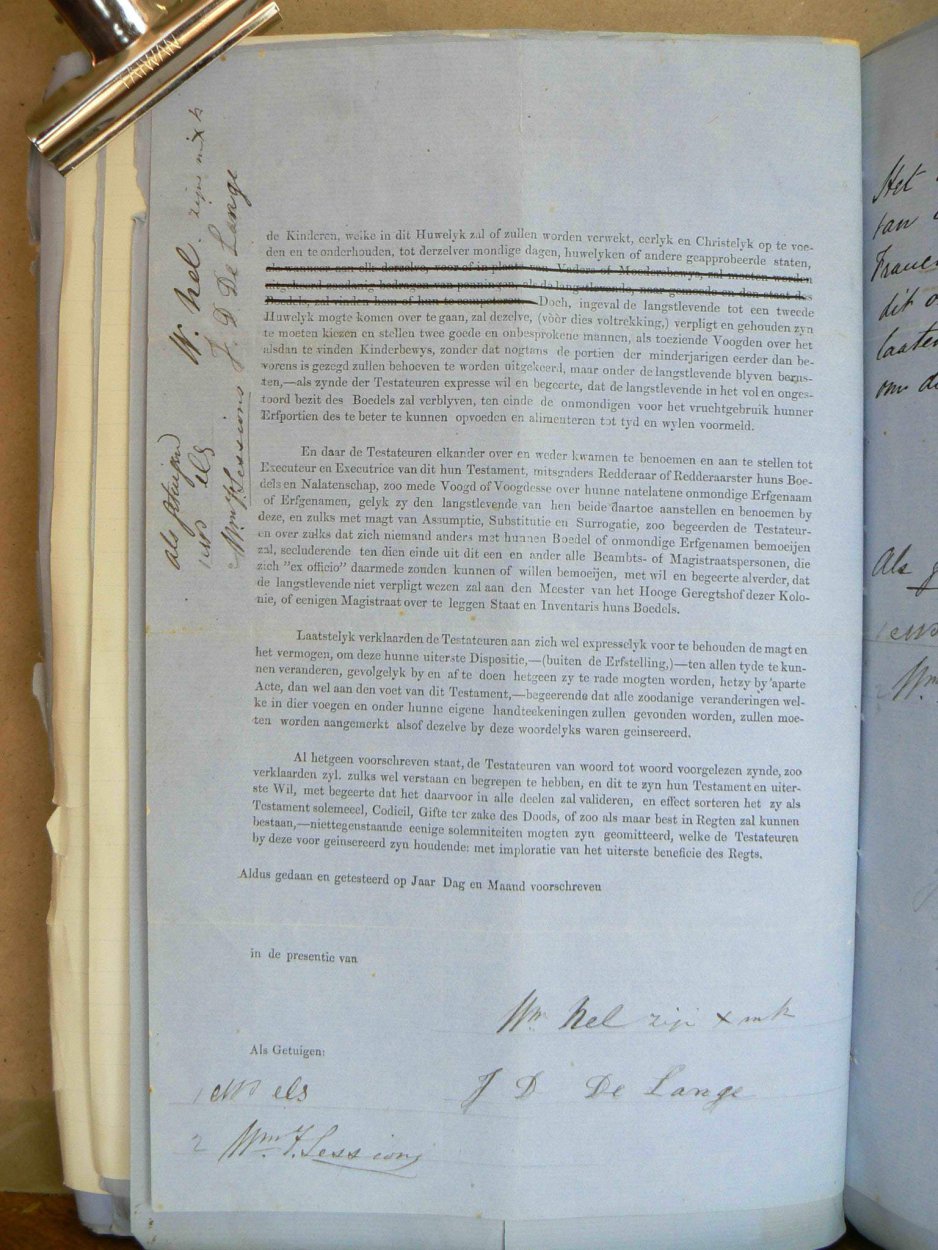 TAIWAN
W. Nel. zijn m x k
J. D. De Lange
als getuigen
els
Wm. F. Sessions
de Kinderen, welke in dit Huwelyk zal of zullen worden verwekt, eerlyk en Christelyk op te voe-
den en te onderhouden, tot derzelver mondige dagen, huwelyken of andere geapprobeerde staten,
als wanneer aan elk derzelve, voor of in plaats van Vaders of Moederbewys, zal moeten worden
uitgekeerd zoodanig bedragen van penningen, als de langstlevende, naar gemoede en den staat des
Boedels, zal vinden hem of hun te competeeren. Doch, ingeval de langstlevende tot een tweede
Huwelyk mogte komen over te gaan, zal dezelve, (vòòr dies voltrekking,) verpligt en gehouden zyn
te moeten kiezen en stellen twee goede en onbesprokene mannen, als toeziende Voogden over het
alsdan te vinden Kinderbewys, zonder dat nogtans de portien der minderjarigen eerder dan be-
vorens is gezegd zullen behoeven te worden uitgekeerd, maar onder de langstlevende blyven berus-
ten,—als zynde der Testateuren expresse wil en begeerte, dat de langstlevende in het vol en onges-
toord bezit des Boedels zal verblyven, ten einde de onmondigen voor het vruchtgebruik hunner
Erfportien des te beter te kunnen opvoeden en alimenteren tot tyd en wylen voormeld.
En daar de Testateuren elkander over en weder kwamen te benoemen en aan te stellen tot
Executeur en Executrice van dit hun Testament, mitsgaders Redderaar of Redderaarster huns Boe-
dels en Nalatenschap, zoo mede Voogd of Voogdesse over hunne natelatene onmondige Erfgenaam
of Erfgenamen, gelyk zy den langstlevende van hen beide daartoe aanstellen en benoemen by
deze, en zulks met magt van Assumptie, Substitutie en Surrogatie, zoo begeerden de Testateur-
en over zulks dat zich niemand anders met hunnen Boedel of onmondige Erfgenamen bemoeijen
zal, secluderende ten dien einde uit dit een en ander alle Beambts- of Magistraatspersonen, die
zich "ex officio" daarmede zonden kunnen of willen bemoeijen, met wil en begeerte alverder, dat
de langstlevende niet verpligt wezen zal aan den Meester van het Hooge Geregtshof dezer Kolo-
nie, of eenigen Magistraat over te leggen Staat en Inventaris huns Boedels.
Laatstelyk verklaarden de Testateuren aan zich wel expresselyk voor te behouden de magt en
het vermogen, om deze hunne uiterste Dispositie,—(buiten de Erfstelling,)—ten allen tyde te kun-
nen veranderen, gevolgelyk by en af te doen hetgeen zy te rade mogten worden, hetzy by aparte
Acte, dan wel aan den voet van dit Testament,—begeerende dat alle zoodanige veranderingen wel-
ke in dier voegen en onder hunne eigene handteekeningen zullen gevonden worden, zullen moe-
ten worden aangemerkt alsof dezelve by deze woordelyks waren geinsereerd.
Al hetgeen voorschreven staat, de Testateuren van woord tot woord voorgelezen zynde, zoo
verklaarden zyl. zulks wel verstaan en begrepen te hebben, en dit te zyn hun Testament en uiter-
ste Wil, met begeerte dat het daarvoor in alle deelen zal valideren, en effect sorteren het zy als
Testament solemeeel, Codicil, Gifte ter zake des Doods, of zoo als maar best in Regten zal kunnen
bestaan,—niettegenstaande eenige solemniteiten mogten zyn geomitteerd, welke de Testateuren
by deze voor geinsereerd zyn houdende: met imploratie van het uiterste beneficie des Regts.
Aldus gedaan en getesteerd op Jaar Dag en Maand voorschreven
in de presentie van
Wm Nel zijn x mk
Als Getuigen:
1 els
J D De Lange
2 Wm F. Sessions
Het
van
Frauen
dit o
laaten
om de
Als g
Wm